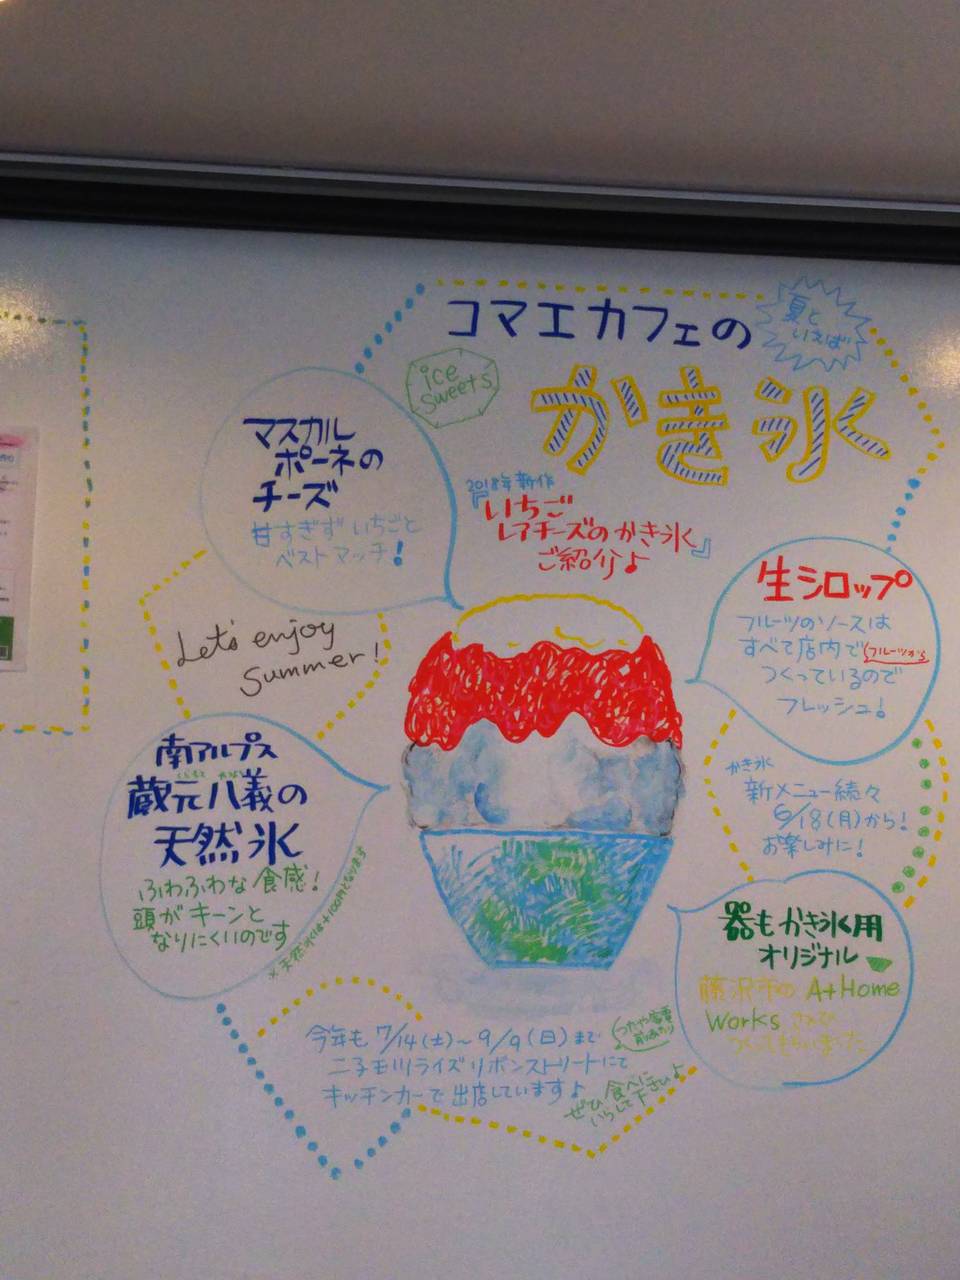 コマエカフェの
夏と
いえば
かき氷
ice
sweets
2018年新作
『いちご
レアチーズのかき氷』
ご紹介♪
マスカル
ポーネの
チーズ
甘すぎず いちごと
ベストマッチ!
Let's enjoy
Summer!
生シロップ
フルーツのソースは
すべて店内で フルーツから
つくっているので
フレッシュ!
南アルプス
蔵元八義の
天然氷
ふわふわな食感!
頭がキーンと
なりにくいのです
※天然氷は+100円となります
かき氷
新メニュー続々
6/18(月)から!
お楽しみに!
器もかき氷用
オリジナル
藤沢市の A+Home
Works さんで
つくってもらいました
今年も 7/14(土)~9/9(日)まで
二子玉川ライズリボンストリートにて
キッチンカーで出店しています♪
つたや家電
ぜひ食べに
いらして下さい♪